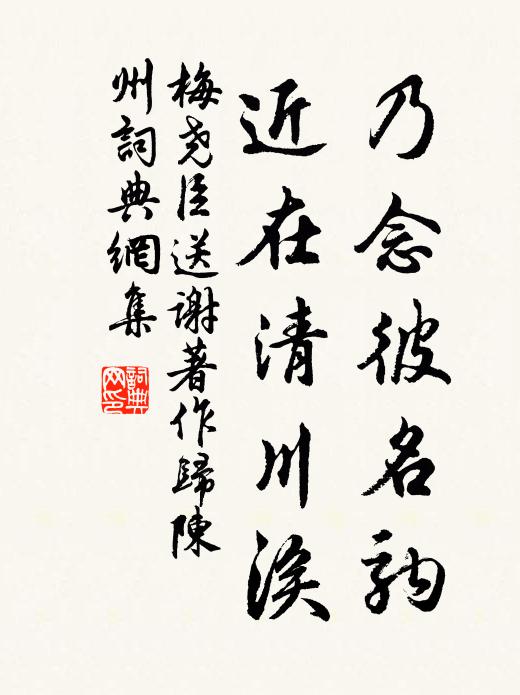 乃念彼名駒
近在清川涘
梅尧臣送謝著作歸陳
州詞典網集
詞典
网印